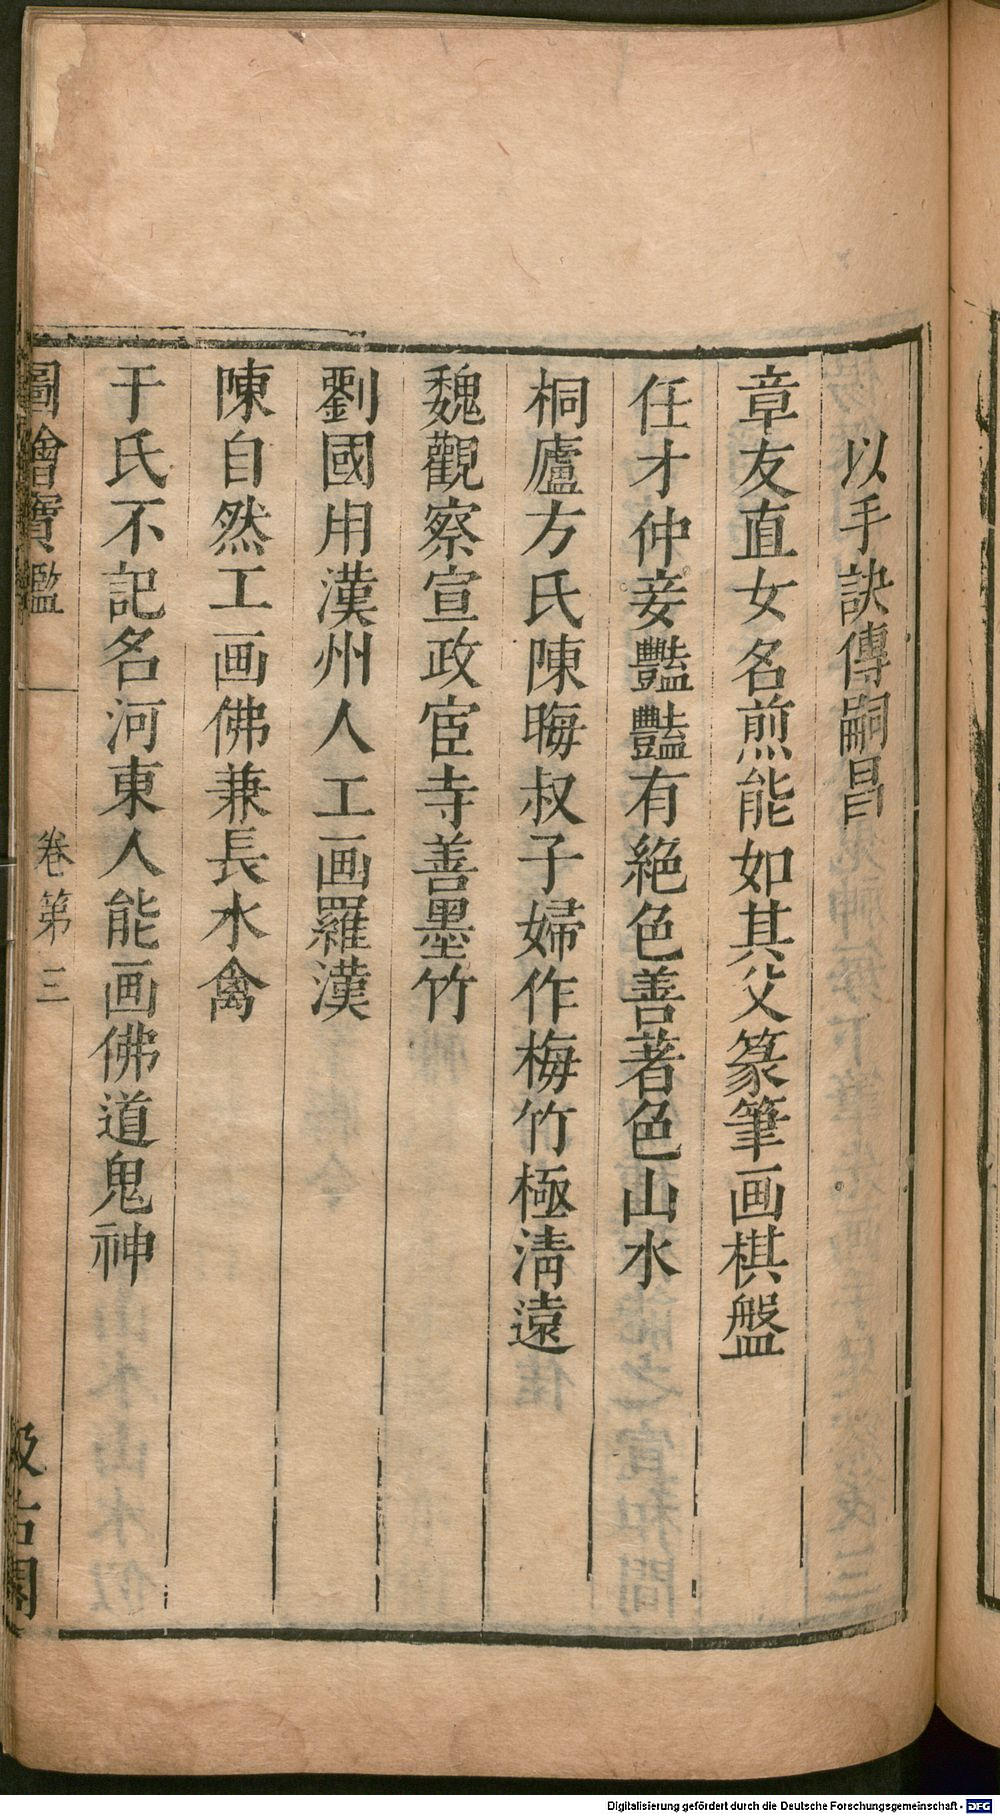 以手訣傳嗣昌
章友直女名煎能如其父篆筆画棋盤
任才仲妾豔豔有絕色善著色山水
桐廬方氏陳晦叔子婦作梅竹極清遠
魏觀察宣政宦寺善墨竹
劉國用漢州人工画羅漢
陳自然工画佛兼長水禽
于氏不記名河東人能画佛道鬼神
圖繪寶鑑
卷第三
汲古閣
Digitalisierung gefördert durch die Deutsche Forschungsgemeinschaft - DFG